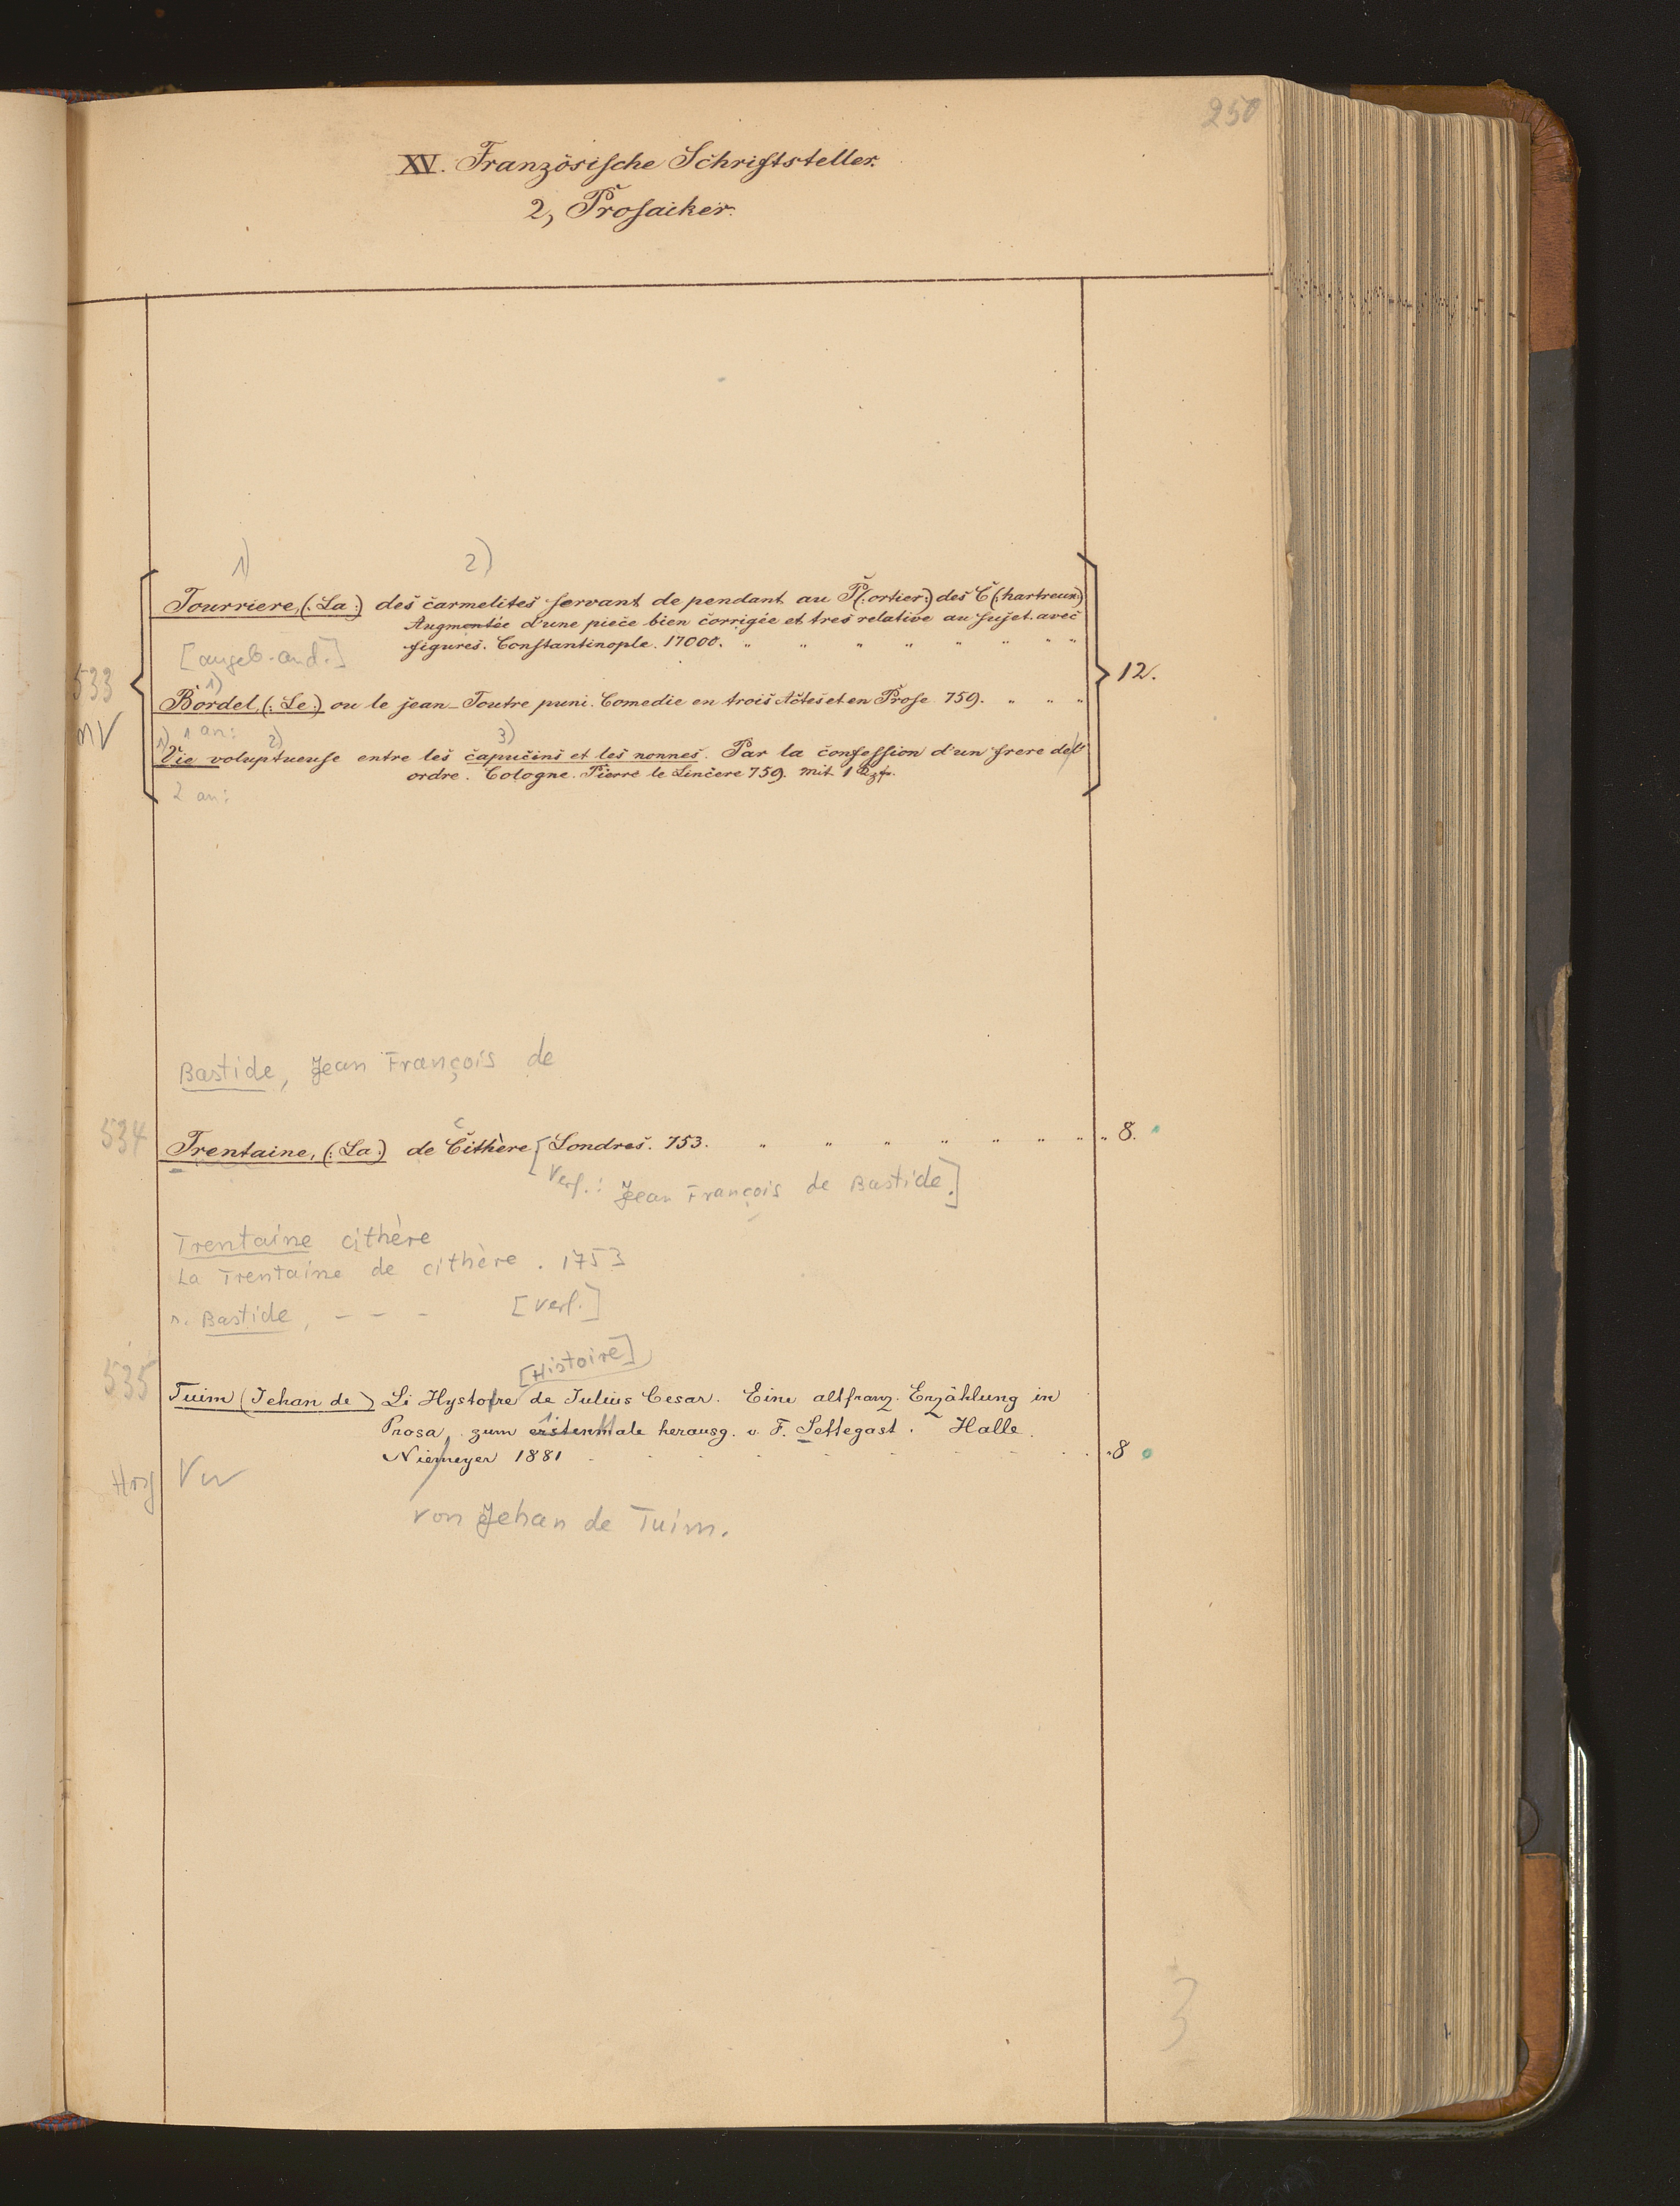 250
XV. Französische Schriftsteller.
2, Prosaiker.
1) 2)
Tourriere, (: La :) des carmelites servant de pendant au P(:ortier:) des C(:hartreux:)
Augmentée d'une piece bien corrigée et tres relative au sujet. avec
figures. Constantinople. 17000. " " " " " " " "
[angeb. and.]
533
12.
1)
Bordel, (: Le :) ou le jean-Foutre puni. Comedie en trois Actes et en Prose 759. " " "
nV
1 an:
1) 2) 3)
Vie voluptueuse entre les capucins et les nonnes. Par la confession d'un frere de l'
ordre. Cologne. Pierre le Sincere 759. mit 1
2 an:
Bastide, Jean François de
534
c
Trentaine, (: La :) de Cithère [Londres. 753. " " " " " " " " 8.
Verf.: Jean François de Bastide.]
Trentaine cithère
La Trentaine de cithère. 1753
s. Bastide, - - - [Verf.]
535
[Histoire]
Tuim (Jehan de) Li Hystoire de Julius Cesar. Eine altfranz. Erzählung in
Prosa, zum erstenmale herausg. v. F. Settegast. Halle.
Niemeyer 1881 . . . . . . . . . 8
Hrsg Vw
von Jehan de Tuim.
3